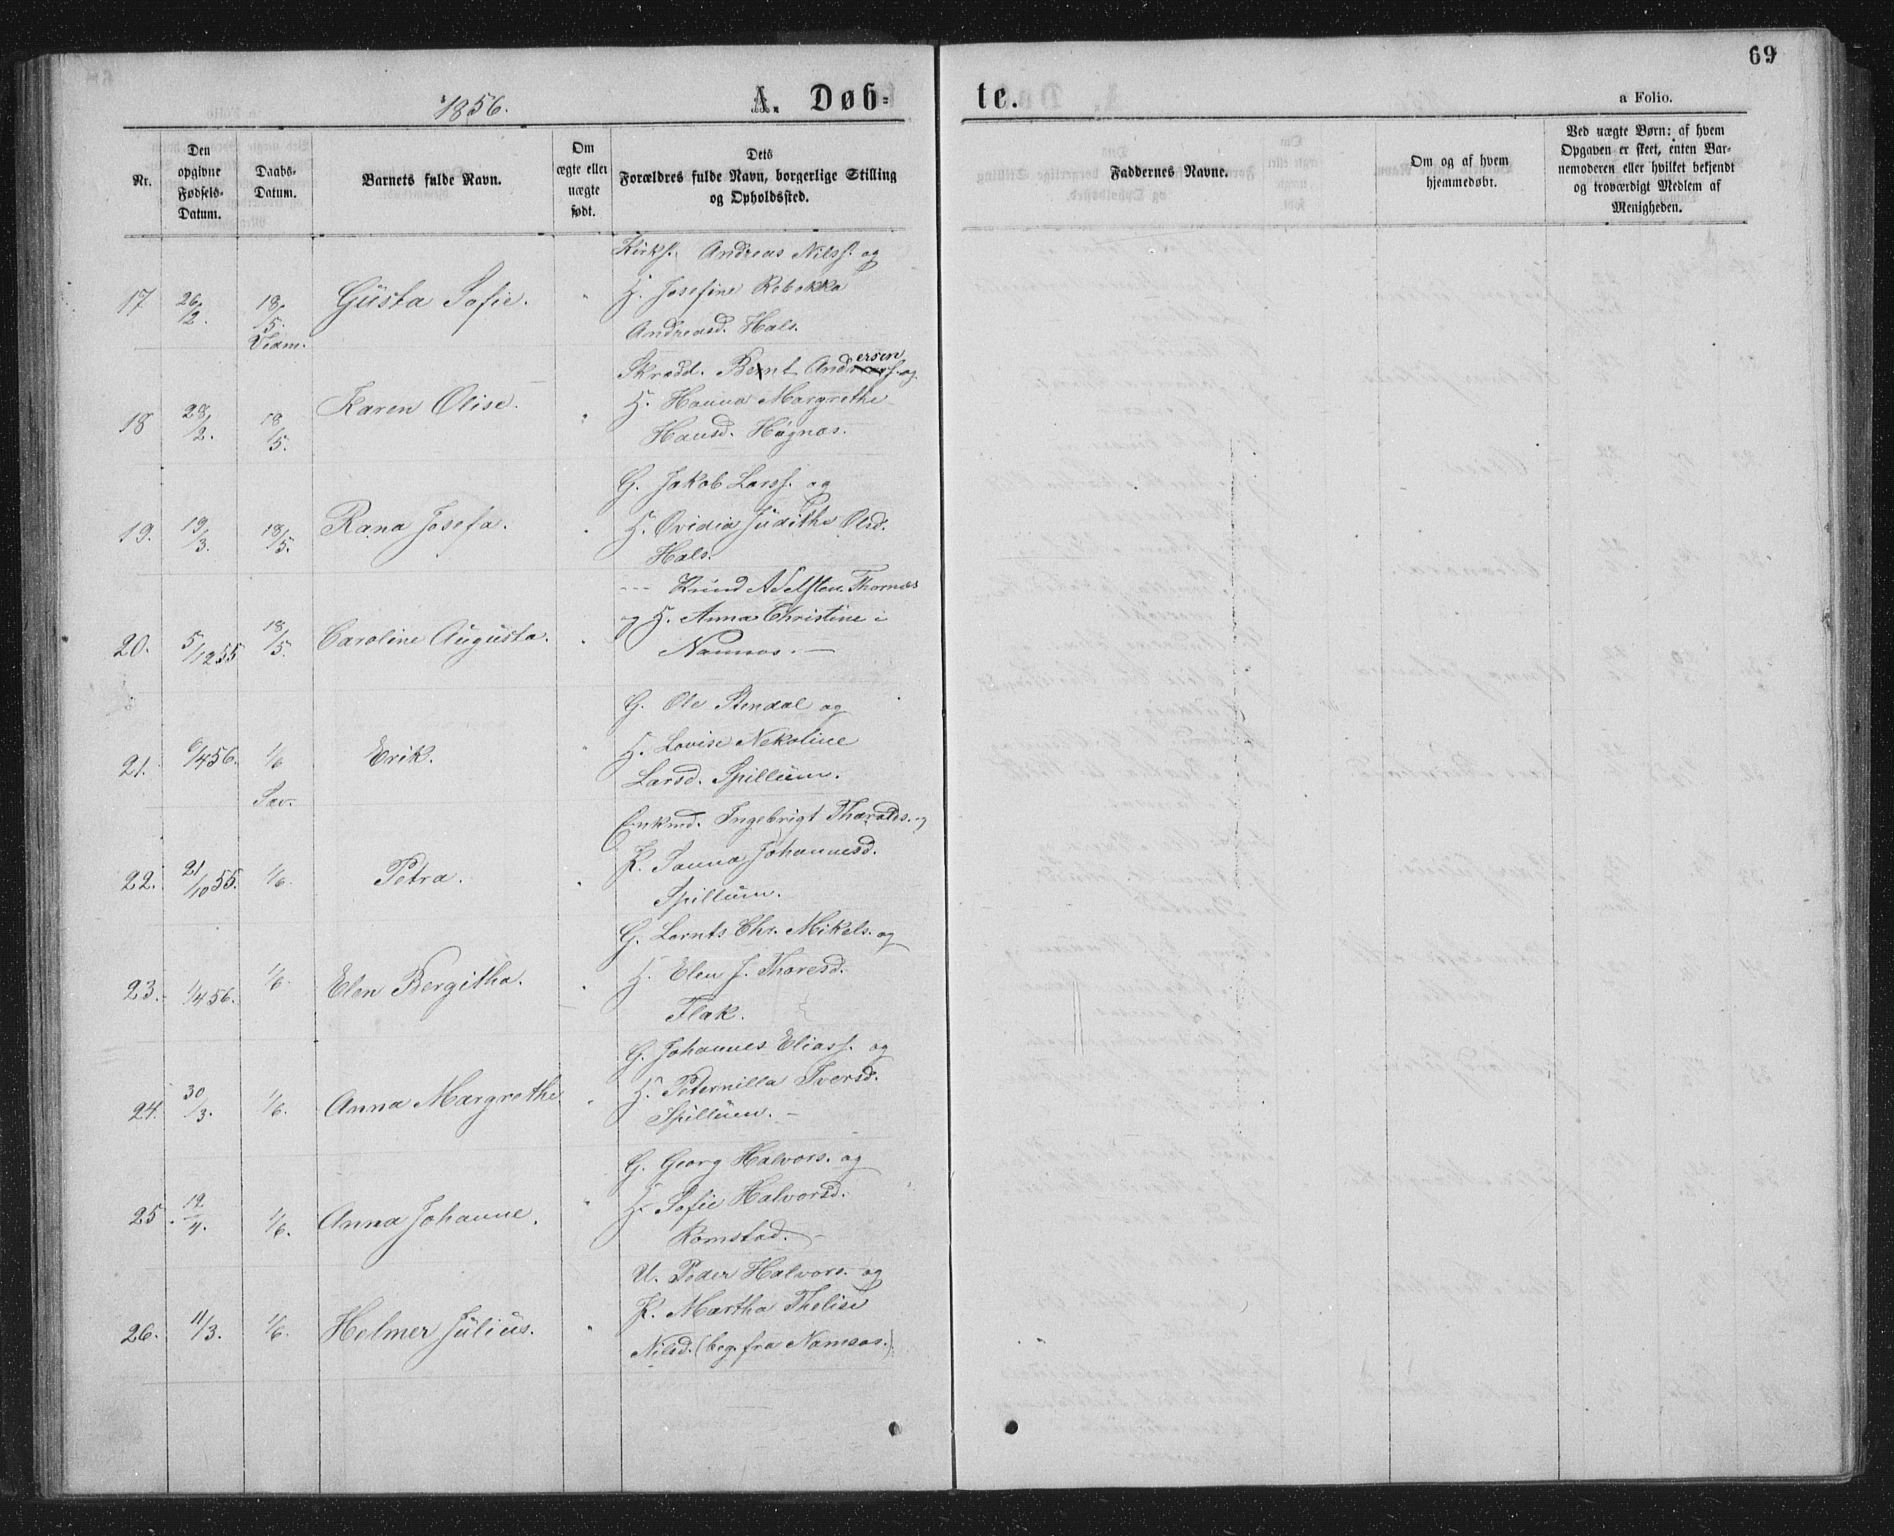 69
1856. A. Døb= te. a Folio.
Nr.
Den opgivne Fødsels-Datum.
Daabs-Datum.
Barnets fulde Navn.
Om ægte eller uægte født.
Dets Forældres fulde Navn, borgerlige Stilling og Opholdssted.
Faddernes Navne.
Om og af hvem hjemmedøbt.
Ved uægte Børn: af hvem Opgaven er skeet, enten Barnemoderen eller hvilket bekjendt og troværdigt Medlem af Menigheden.
Kirks. Andreas Nilss. og
17 26/2. 18/5. Gusta Sofie. " H. Josefine Rebekka
Andreasd. Hals.
Skradd. Bernt Andersen og
18 28/2. 18/5. Karen Olise. " H. Hanna Margrethe
Hansd. Høgnæs.
G. Jakob Larss. og
19. 19/3. 18/5. Rana Josefa. " H. Ovidia Judithe Olsd.
Hals.
--- Knud Adelsten Thornæs
20. 5/12 55 18/5. Caroline Augusta. " og H. Anna Christine i
Namsos. —
G. Ole Stendal og
21. 6/4 56. 1/6 Erik. " H. Lovise Nekoline
Sæv. Larsd. Spillum.
Enkmd. Ingebrigt Tharalds. og
22. 21/10 55. 1/6. Petra. " P. Sanna Johannesd.
Spillum.
G. Lornts Chr. Mikels. og
23. 1/4 56. 1/6. Elen Bergitha. " H. Elen J. Thoresd.
Flak.
G. Johannes Eliass. og
24. 30/3. 1/6. Anna Margrethe " H. Peternilla Iversd.
Spillum. —
G. Georg Halvors. og
25. 19/4. 1/6. Anna Johanne. " H. Sofie Halvorsd.
Romstad. —
U. Peder Halvors. og
26. 11/3. 1/6. Helmer Julius. " P. Martha Thelise
Nilsd. (beg. fra Namsos.)